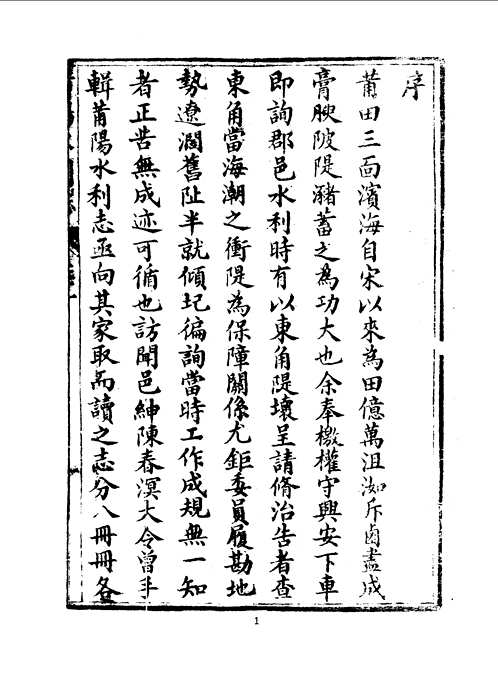 序
莆田三面濱海自宋以來為田億萬沮洳斥鹵盡成
膏腴陂隄瀦蓄之為功大也余奉檄權守興安下車
即詢郡邑水利時有以東角隄壞呈請脩治告者查
東角當海潮之衝隄為保障關係尤鉅委員履勘地
勢遼濶舊阯半就傾圮徧詢當時工作成規無一知
者正苦無成迹可循也訪聞邑紳陳春溟大令曾手
輯莆陽水利志亟向其家取而讀之志分八冊冊各
1